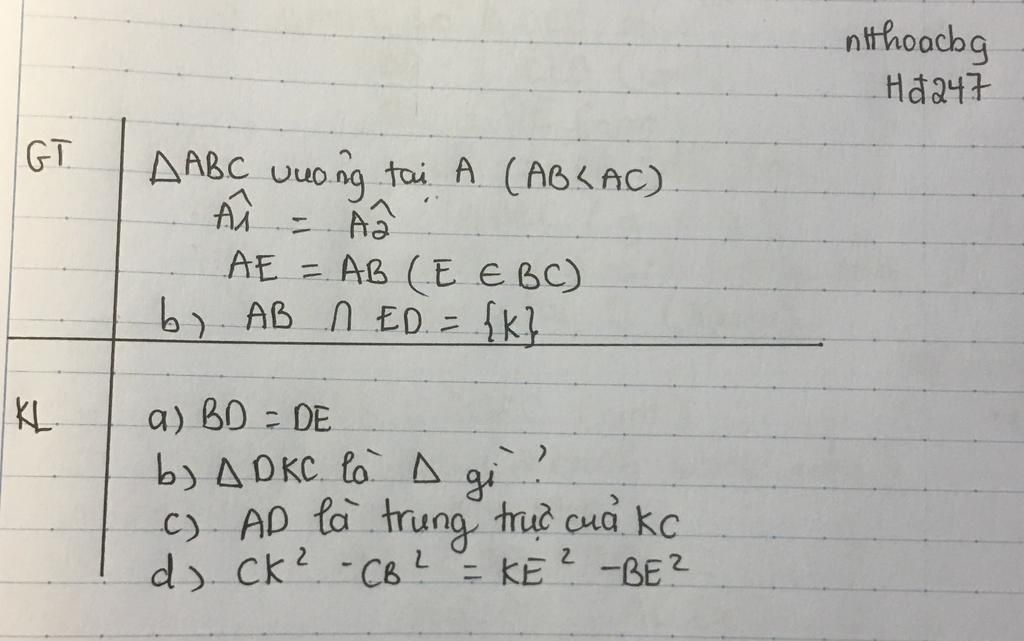 nHhoacbg
Hđ247
GT
ΔABC vuông tại A (AB<AC)
Â1 = Â2
AE = AB (E ∈ BC)
b) AB ∩ ED = {K}
KL
a) BD = DE
b) Δ DKC là Δ gì?
c) AD là trung trực của KC
d) CK² - CB² = KE² - BE²